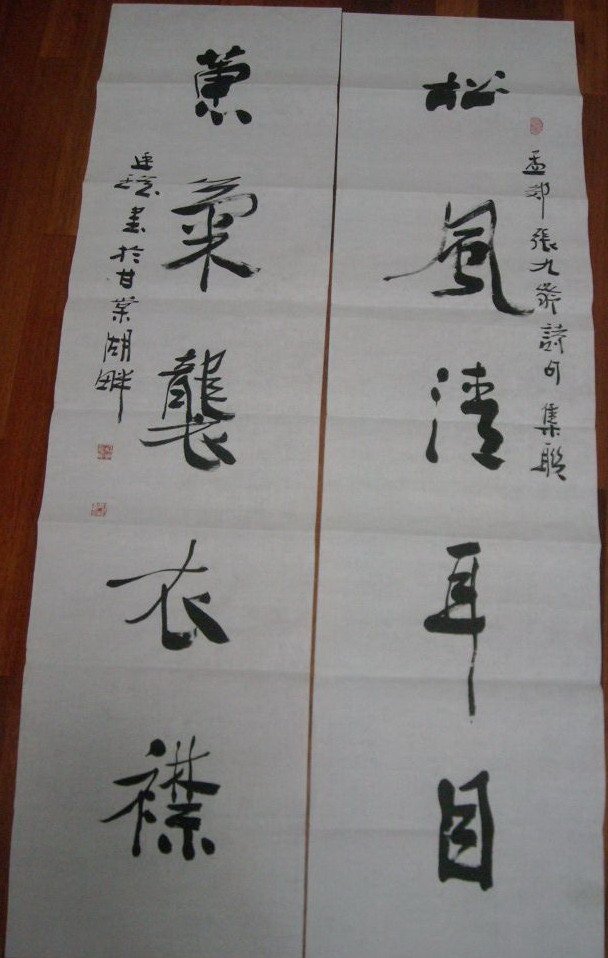 松風清耳目
孟郊張九齡詩句 集聯
蕙氣襲衣襟
書於甘棠湖畔